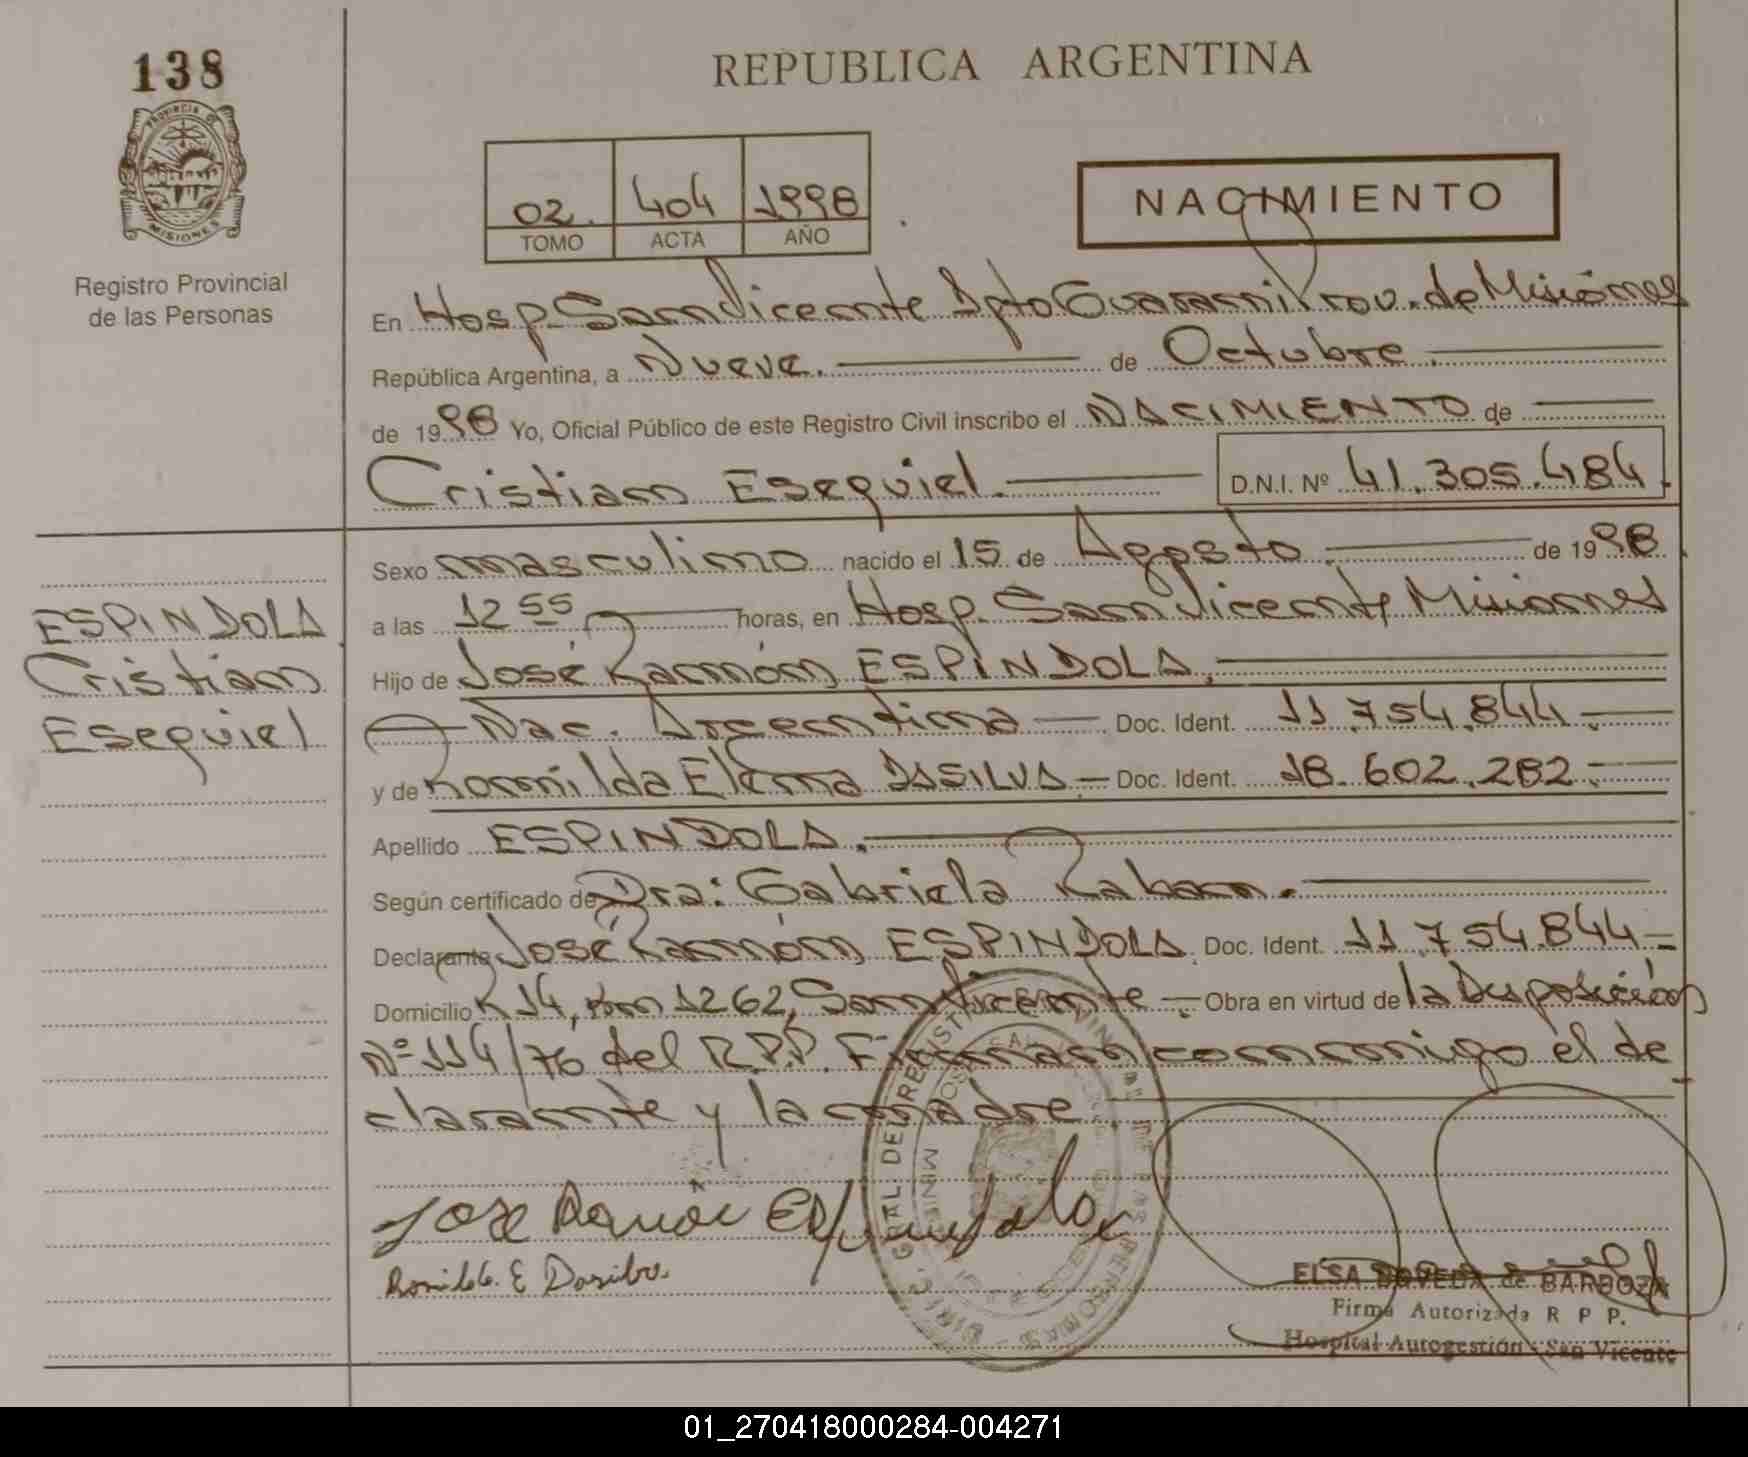 138
REPUBLICA ARGENTINA
PROVINCIA DE
MISIONES
Registro Provincial
de las Personas
02. 404 1998
TOMO ACTA AÑO
NACIMIENTO
En Hosp. San Vicente Dpto Guarani Prov. de Misiones
República Argentina, a Nueve. de Octubre
de 1998 Yo, Oficial Público de este Registro Civil inscribo el NACIMIENTO de
Cristian Esequiel. D.N.I. Nº 41.305.484.
Sexo masculino nacido el 15 de Agosto de 1998
a las 12 55 horas, en Hosp. San Vicente Misiones
Hijo de José Ramón ESPINDOLA.
Nac. Argentina Doc. Ident. 11.754.844
y de Romilda Elena DASILVA Doc. Ident. 18.602.282
Apellido ESPINDOLA.
Según certificado de Dra: Gabriela
Declarante José Ramón ESPINDOLA. Doc. Ident. 11.754.844
Domicilio R 14, Km 1262, San Vicente Obra en virtud de la Disposición
Nº 114/76 del R.P.P. Firman conmigo el de
clarante y la madre
ESPINDOLA
Cristian
Esequiel
Jose Ramon Espindola
Romilda E Dasilva
ELSA de BARBOZA
Firma Autorizada R P P.
Hospital Autogestión San Vicente
01_270418000284-004271